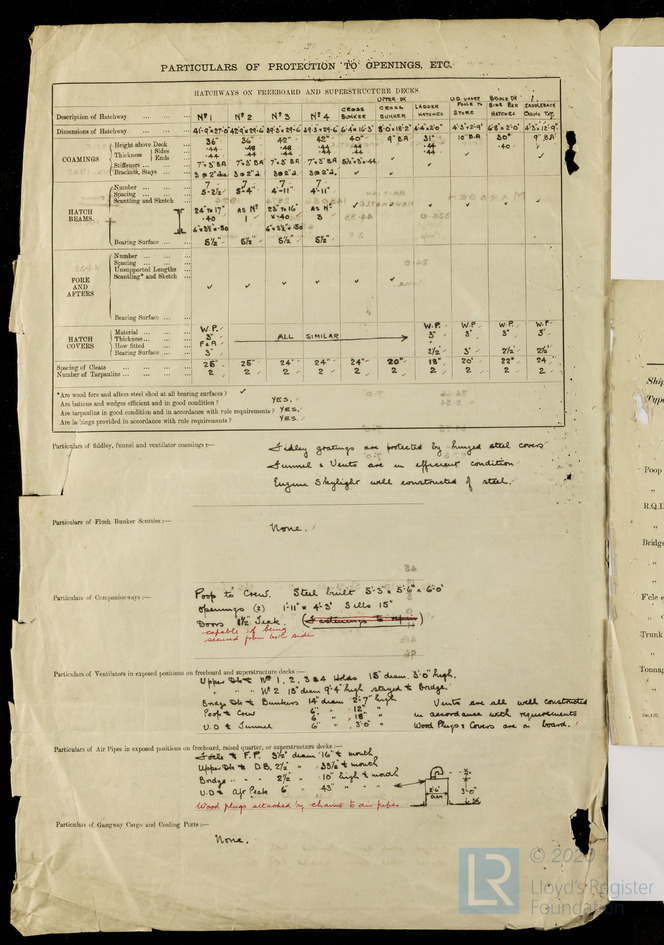 PARTICULARS OF PROTECTION TO OPENINGS, ETC.
HATCHWAYS ON FREEBOARD AND SUPERSTRUCTURE DECKS
Description of Hatchway ... Nº 1 Nº 2 Nº 3 Nº 4 CROSS BUNKER UPPER DK CROSS BUNKER LADDER HATCHES U.D. UNDER POOP TO STORE BRIDGE DK HATCHES SADDLEBACK
Dimensions of Hatchway ... 41'-9"×27'-0" 42'-9"×29'-6 39'-3×29'-6 39'-3×29'-6 6'-4×16'-3" 4'-4×2'-0" 4'-3×2'-9" 6'-8×2'-0" 4'-3×12'-9"
COAMINGS
Height above Deck ... 36" 36" 42" 42" 40" 9" BA 31" 10" BA 30" 9" BA
Thickness Sides .44 .48 .48 .44 .44 .44 .40
Ends .44 .44 .44 .44 .44 .44
Stiffeners ... 7"×3" BA 7"×3" BA 7"×3" BA 7"×3" BA
Brackets, Stays
HATCH BEAMS.
Number ... 7 7 7 7
Spacing ... 5'-2½" 5'-4" 4'-11" 4'-11"
Scantling and Sketch
24" to 17" AS Nº 23" to 16" AS Nº
.40 1 ×.40 3
6"×3½"×.50 6"×3½"×.50
Bearing Surface ... 5½" 5½" 5½" 5½"
FORE AND AFTERS
Number ...
Spacing ...
Unsupported Lengths
Scantling* and Sketch
Bearing Surface ...
HATCH COVERS
Material ... W.P. W.P. W.P. W.P. W.P.
Thickness ... 3" ALL SIMILAR 3" 3" 3" 3"
How fitted F & A
Bearing Surface ... 3" 2½ 3" 2½" 2½"
Spacing of Cleats ... 25" 25" 24" 24" 24" 20" 18" 20" 22" 24
Number of Tarpaulins ... 2 2 2 2 2 2 2 2 2 2
*Are wood fore and afters steel shod at all bearing surfaces ?
Are battens and wedges efficient and in good condition ? YES.
Are tarpaulins in good condition and in accordance with rule requirements ? YES.
Are lashings provided in accordance with rule requirements ? YES.
Particulars of fiddley, funnel and ventilator coamings :—
Fidley gratings are protected by hinged steel covers
Funnel & Vents are in efficient condition
Engine Skylight well constructed of steel.
Particulars of Flush Bunker Scuttles :—
None.
Particulars of Companionways :—
Poop to Crew. Steel built 5'-3 × 5'-6" × 6'-0"
openings (2) 1'-11" × 4'-3" Sills 15"
Doors 1½" Teak. Fastenings to repair
capable of being
secured from both sides
Particulars of Ventilators in exposed positions on freeboard and superstructure decks :—
Upper Dk to Nº 1, 2, 3 & 4 Holds 15" diam. 3'-0" high.
" " " Nº 2 15" diam 9'-4" high stayed to Bridge.
Bridge Dk to Bunkers 14" diam 2'-7" high Vents are all well constructed
Poop to Crew 6" " 12" " in accordance with requirements
6" " 18" "
U.D to Tunnel 6" " 3'-0" " Wood Plugs & Covers are on board.
Particulars of Air Pipes in exposed positions on freeboard, raised quarter, or superstructure decks :—
F.P. 3½" diam 16" to mouth
Upper Dk to D.B. 2½ " 33½" to mouth
Bridge " " 2½ " 10" high to mouth
U.D to Aft Peak 6 " 43" "
Wood plugs attached by chains to air pipes
2'-6" DIAM 3'-0"
Particulars of Gangway Cargo and Coaling Ports :—
None.
Ship
Type
Poop
R.Q.D
Bridge
F'cle
Trunk
Tonnag
LR
© 2020
Lloyd's Register
Foundation